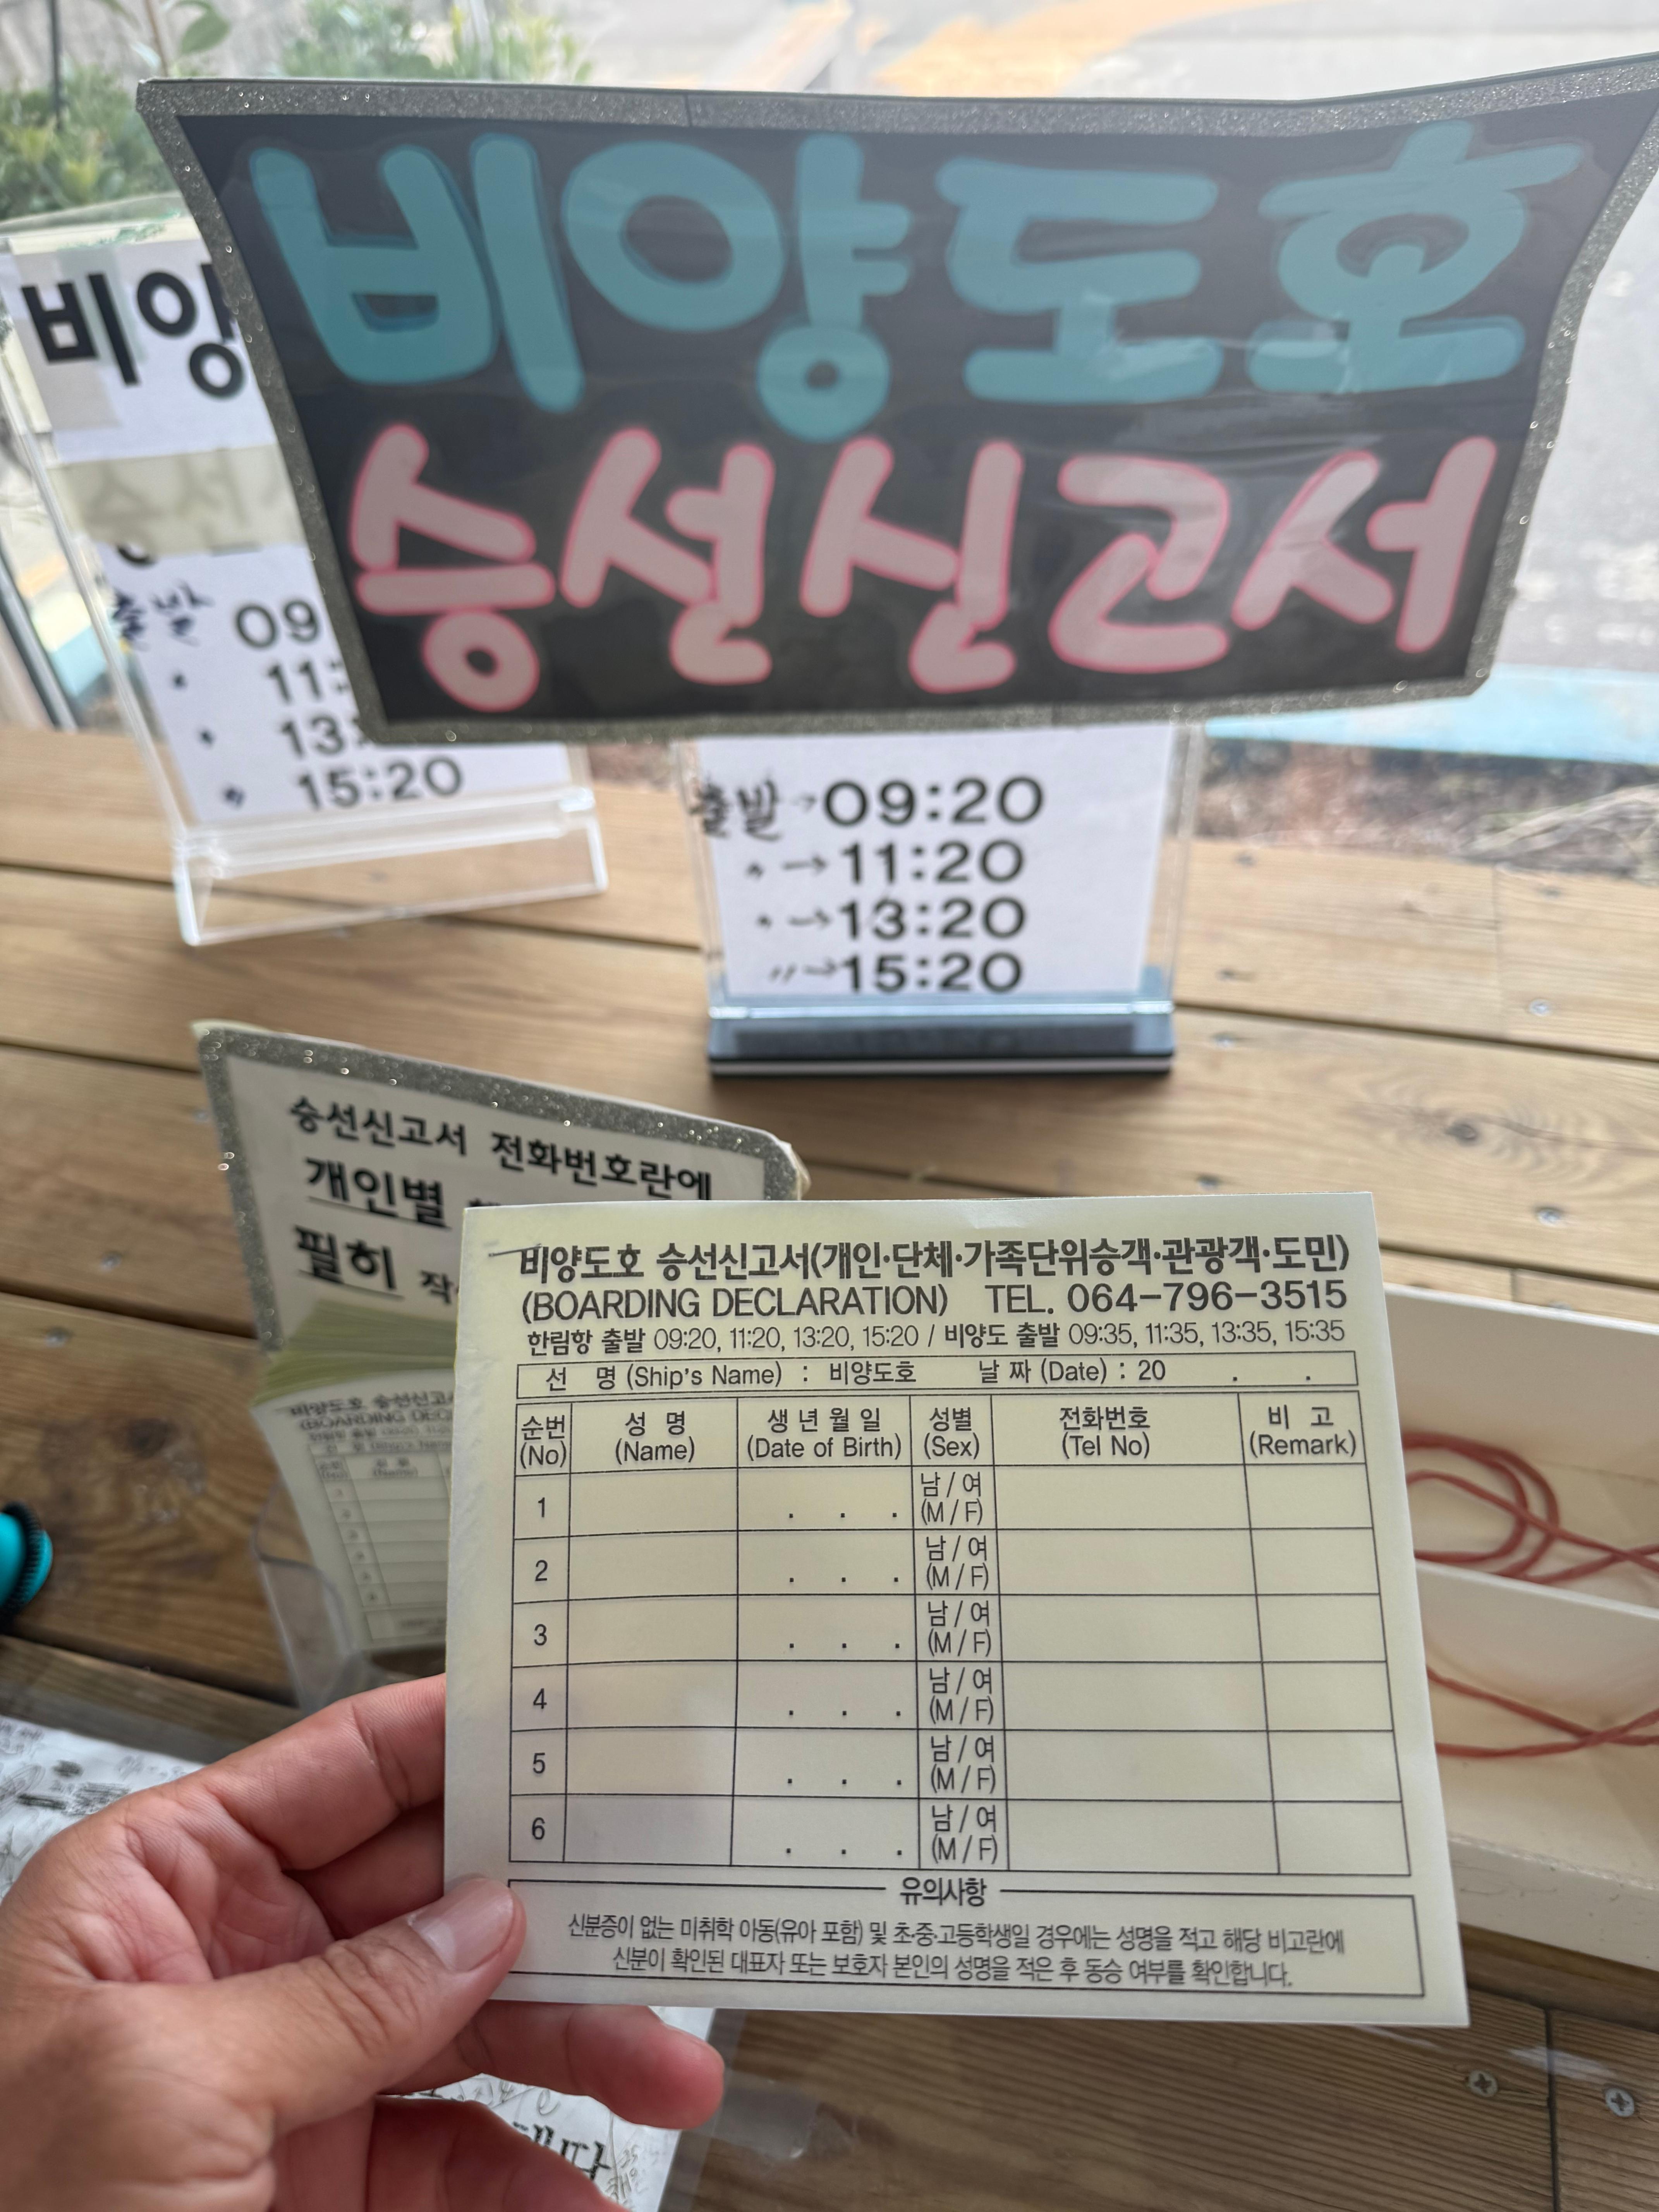 비양도호
승선신고서
비양
출발 09
11:
13:
15:20
출발→09:20
〃→11:20
〃→13:20
〃→15:20
승선신고서 전화번호란에
개인별
필히 작
비양도호 승선신고서(개인·단체·가족단위승객·관광객·도민)
(BOARDING DECLARATION) TEL. 064-796-3515
한림항 출발 09:20, 11:20, 13:20, 15:20 / 비양도 출발 09:35, 11:35, 13:35, 15:35
선 명 (Ship's Name) : 비양도호 날 짜 (Date) : 20 . .
순번 (No) 성 명 (Name) 생 년 월 일 (Date of Birth) 성별 (Sex) 전화번호 (Tel No) 비 고 (Remark)
1 . . . 남 / 여 (M / F)
2 . . . 남 / 여 (M / F)
3 . . . 남 / 여 (M / F)
4 . . . 남 / 여 (M / F)
5 . . . 남 / 여 (M / F)
6 . . . 남 / 여 (M / F)
유의사항
신분증이 없는 미취학 아동(유아 포함) 및 초·중·고등학생일 경우에는 성명을 적고 해당 비고란에
신분이 확인된 대표자 또는 보호자 본인의 성명을 적은 후 동승 여부를 확인합니다.
비양도호 승선신고
(BOARDING DEC